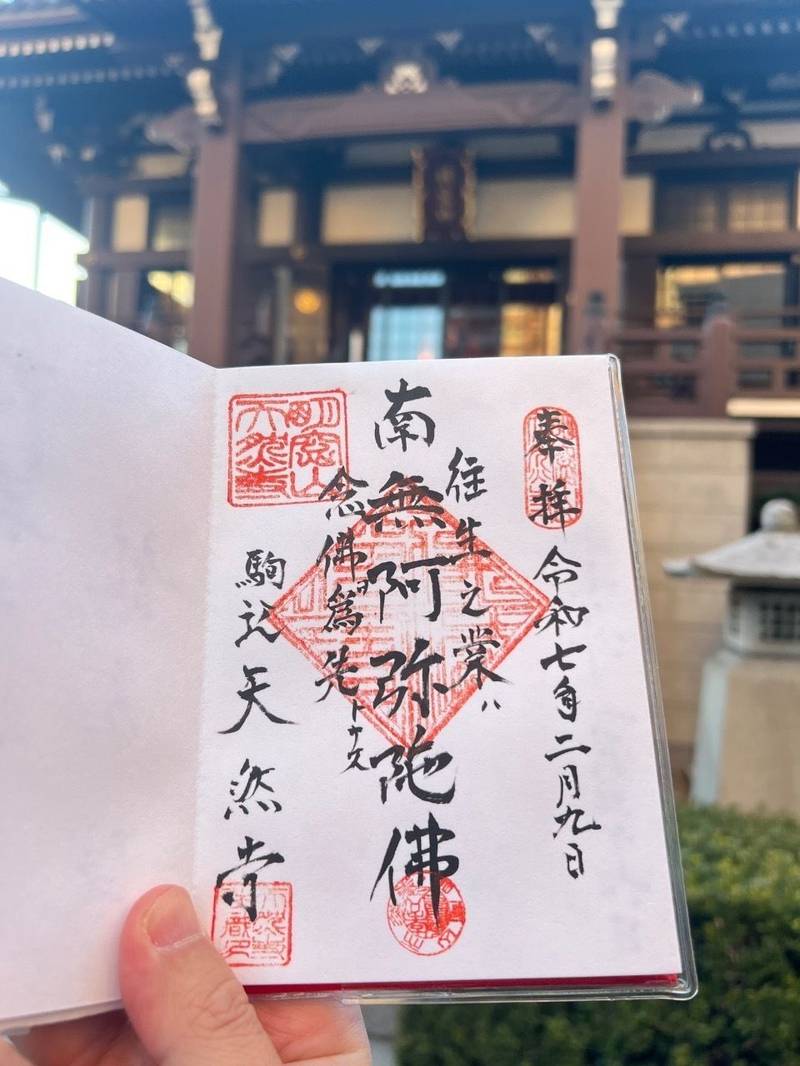 奉拝
令和七年二月九日
往生之業ハ
南無阿弥陀佛
念佛ヲ爲先トナス
明窓山
天然寺
駒込
天然寺